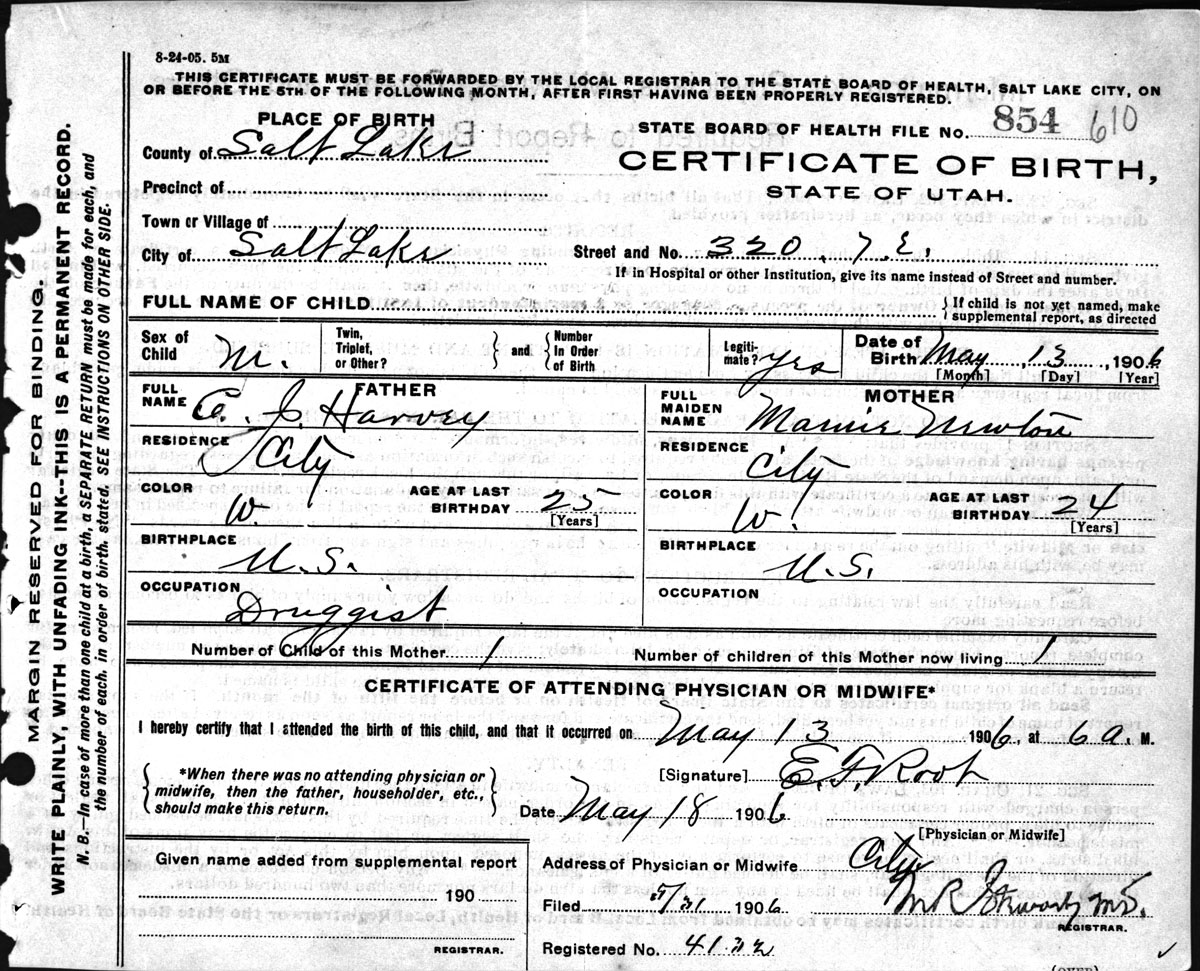 8-24-05. 5M
THIS CERTIFICATE MUST BE FORWARDED BY THE LOCAL REGISTRAR TO THE STATE BOARD OF HEALTH, SALT LAKE CITY, ON
OR BEFORE THE 5TH OF THE FOLLOWING MONTH, AFTER FIRST HAVING BEEN PROPERLY REGISTERED.
PLACE OF BIRTH
STATE BOARD OF HEALTH FILE No. 854 610
County of Salt Lake
CERTIFICATE OF BIRTH,
STATE OF UTAH.
Precinct of
Town or Village of
City of Salt Lake
Street and No. 320. 7. E.
If in Hospital or other Institution, give its name instead of Street and number.
FULL NAME OF CHILD
If child is not yet named, make
supplemental report, as directed
Sex of Child M.
Twin, Triplet, or Other?
and
Number In Order of Birth
Legiti-mate? yes
Date of Birth May 13, 1906
[Month] [Day] [Year]
FATHER
FULL NAME C. J. Harvey
RESIDENCE City
COLOR W.
AGE AT LAST BIRTHDAY 25
[Years]
BIRTHPLACE U.S.
OCCUPATION Druggist
MOTHER
FULL MAIDEN NAME Mamie Newton
RESIDENCE City
COLOR W.
AGE AT LAST BIRTHDAY 24
[Years]
BIRTHPLACE U.S.
OCCUPATION
Number of Child of this Mother 1
Number of children of this Mother now living 1
CERTIFICATE OF ATTENDING PHYSICIAN OR MIDWIFE*
I hereby certify that I attended the birth of this child, and that it occurred on May 13 1906, at 6 a. M.
*When there was no attending physician or
midwife, then the father, householder, etc.,
should make this return.
[Signature] E. F. Root
Date May 18 1906
[Physician or Midwife]
Given name added from supplemental report
190
REGISTRAR.
Address of Physician or Midwife City
Filed 5/21 1906
M R Stewart, M.D.
REGISTRAR.
Registered No. 4122
(OVER)
MARGIN RESERVED FOR BINDING.
WRITE PLAINLY, WITH UNFADING INK--THIS IS A PERMANENT RECORD.
N. B.—In case of more than one child at a birth, a SEPARATE RETURN must be made for each, and
the number of each, in order of birth, stated. SEE INSTRUCTIONS ON OTHER SIDE.